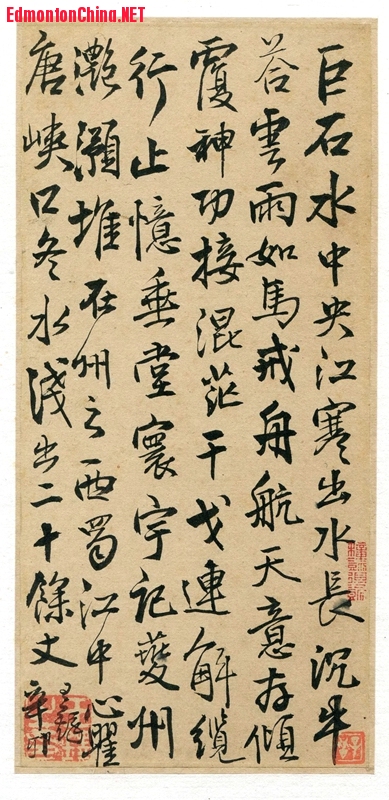 EdmontonChina.NET
巨石水中央江寒出水長沉牛
荅雲雨如馬戒舟航天意存傾
覆神功接混茫干戈連解纜
行止憶垂堂寰宇記夔州
灔澦堆在州之西蜀江中心瞿
唐峽口冬水淺出二十餘丈
辛卯